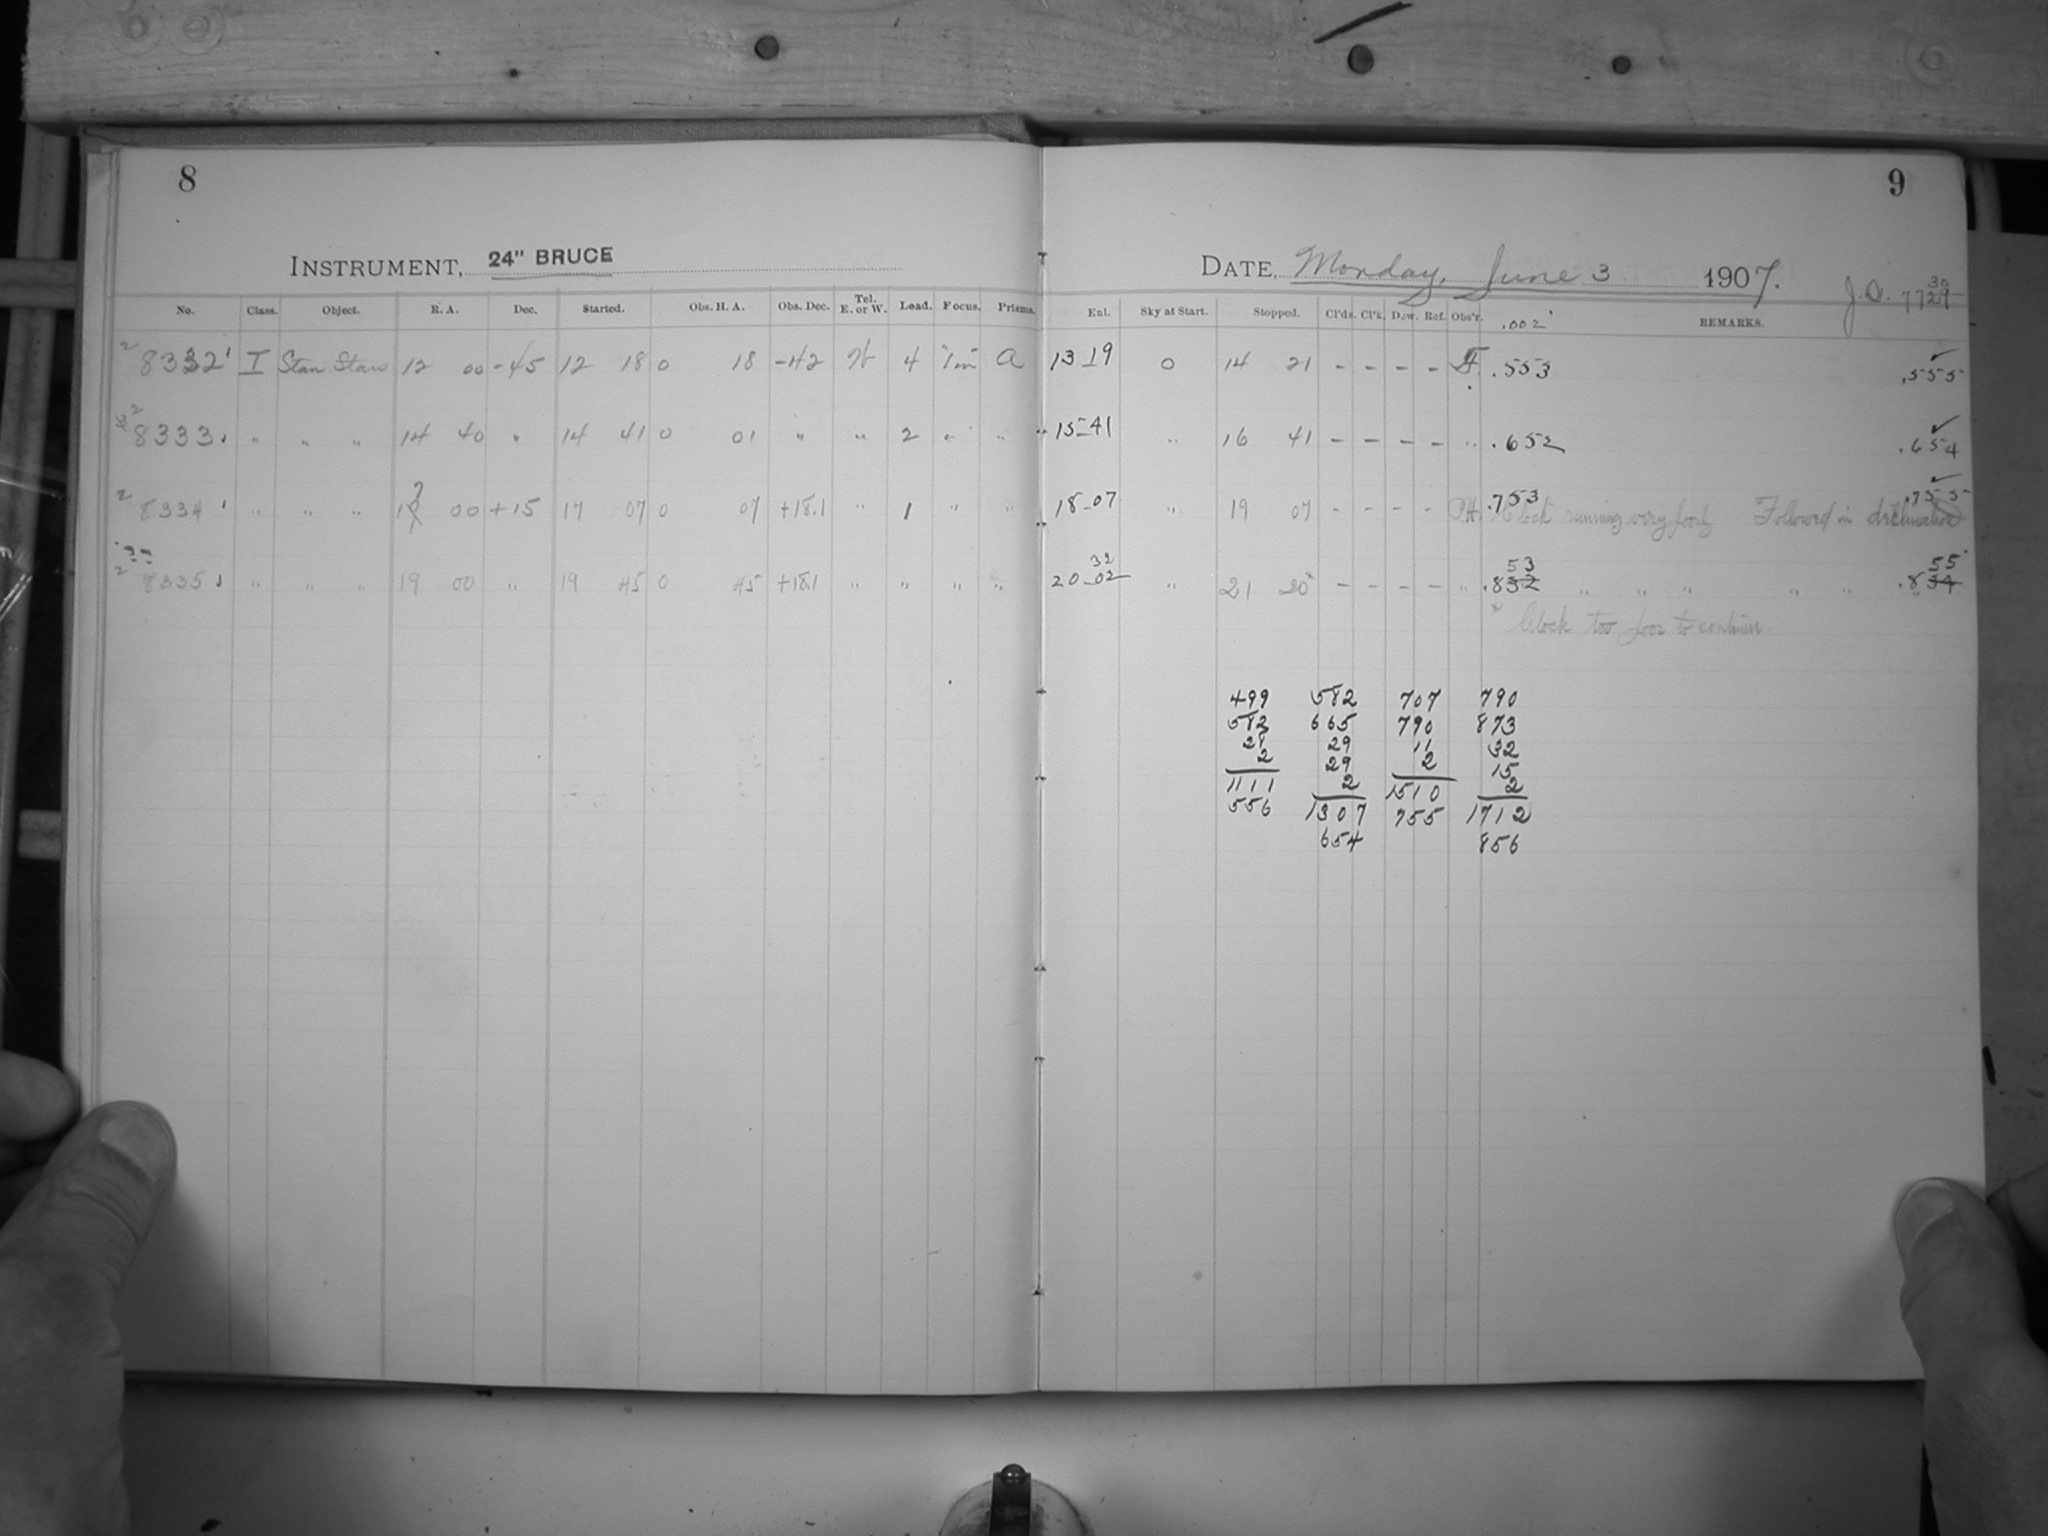 8
INSTRUMENT, 24" BRUCE
No. Class. Object. R. A. Dec. Started. Obs. H. A. Obs. Dec. Tel. E. or W. Lead. Focus. Prisms.
2 8332 I 12 00 -45 12 18 0 18 -42 4 A
2 8333 " " " 14 40 " 14 41 0 01 " " 2 " "
2 8334 " " " 00 +15 17 07 0 07 +18.1 " 1 " "
2 8335 " " " 19 00 " 19 45 0 45 +18.1 " " " "
9
DATE, Monday, June 3 1907. J.D. 7729 30
Enl. Sky at Start. Stopped. Cl'ds. Cl'k. Dew. Ref. Obs'r. .002 REMARKS.
13-19 0 14 21 - - - - .553 .555
15-41 " 16 41 - - - - " .652 .654
18-07 " 19 07 - - - - .753 Clock running very poorly Followed in declination .755
32
20-02 " 21 20* - - - - " .832 53 " " " " " " .834 55
* Clock too poor to continue
499 582 707 790
583 665 790 873
28 29 11 32
2 29 2 15
1111 2 1510 2
556 1307 755 1712
654 856